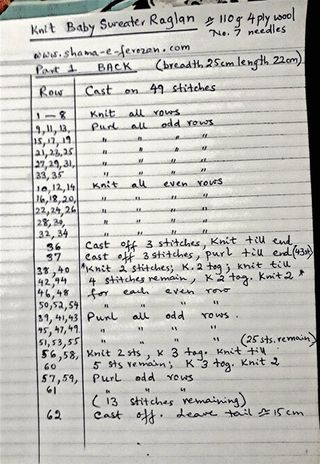 Knit Baby Sweater Raglan ≈ 110 g 4 ply wool
No. 7 needles
www.shama-e-ferozan.com
Part 1 BACK (breadth 25cm length 22cm)
Row Cast on 49 stitches
1 — 8 Knit all rows
9, 11, 13, Purl all odd rows
15, 17, 19 " " " "
21, 23, 25 " " " "
27, 29, 31, " " " "
33, 35 " " " "
10, 12, 14 Knit all even rows
16, 18, 20, " " " "
22, 24, 26 " " " "
28, 30, " " " "
32, 34 " " " "
36 Cast off 3 stitches, Knit till end
37 Cast off 3 stitches, purl till end (43st)
38, 40 *Knit 2 stitches; K. 2 tog; knit till
42, 44 4 stitches remain, K 2 tog. Knit 2 *
46, 48 for each even row
50, 52, 54 " " "
39, 41, 43 Purl all odd rows.
45, 47, 49 " " " "
51, 53, 55 " " " (25 sts. remain)
56, 58, Knit 2 sts, K 3 tog. Knit till
60 5 sts remain; K 3 tog. Knit 2
57, 59, Purl odd rows
61 " " "
(13 stitches remaining)
62 Cast off. Leave tail ≈ 15 cm